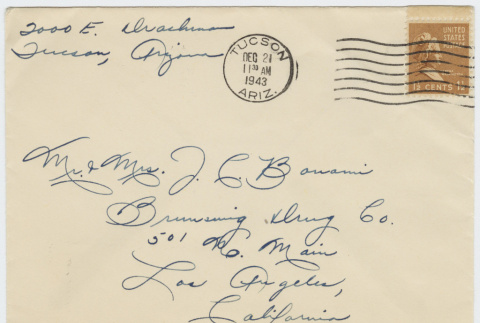 2000 E. Drachman
Tucson, Arizona
TUCSON
DEC 21
11 30 AM
1943
ARIZ.
UNITED
STATES
POSTAGE
1½ CENTS 1½
Mr. & Mrs. J. C. Bonami
Brunswig Drug Co.
501 No. Main
Los Angeles,
California